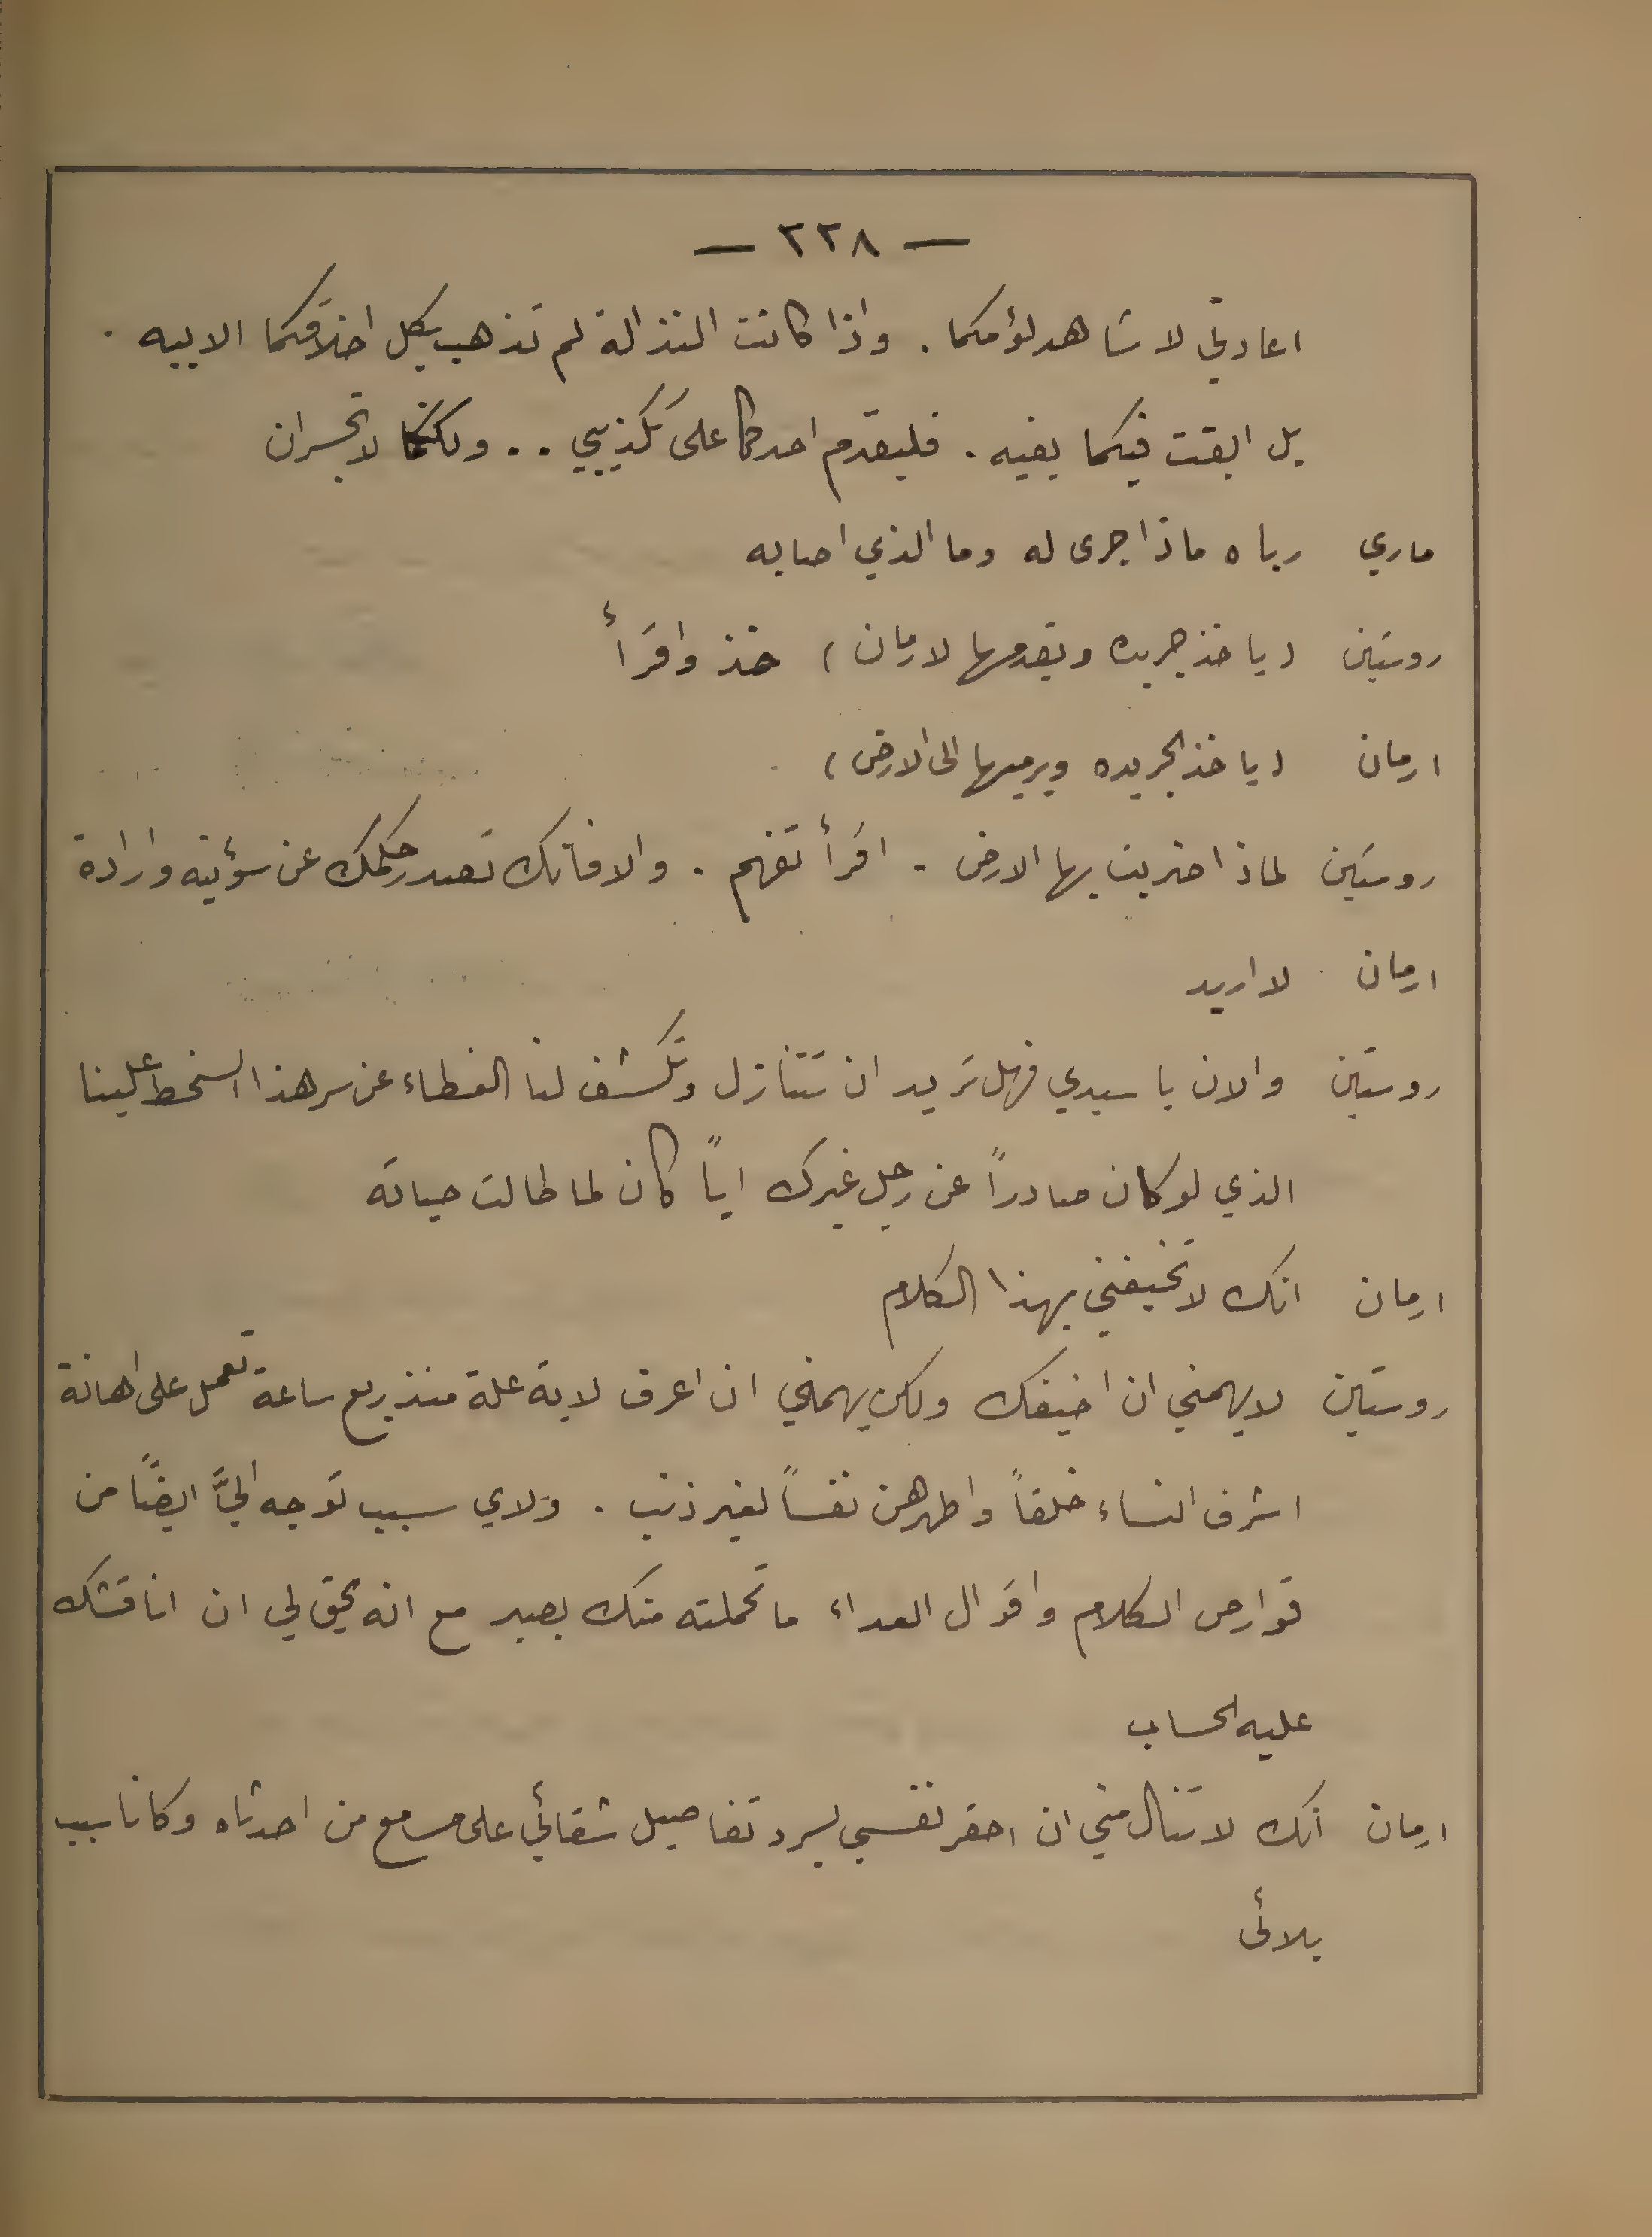 — ٢٢٨ —
اعادتي لاشاهد لؤمكما . واذا كانت النذالة لم تذهب بكل اخلاقكما الابيه .
بل ابقت فيكما بقيه . فليقدم احدكما على تكذيبي .. ولكنكما لا تجسران
ماري رباه ماذا جرى له وما الذي اصابه
روستين (ياخذ جريده ويقدمها لارمان) خذ واقرأ
ارمان (ياخذ الجريده ويرميها الى الارض)
روستين لماذا ضربت بها الارض . اقرأ تفهم . والا فانك تصدر حكمك عن سؤنيه وارادة
ارمان لا اريد
روستين والان يا سيدي فهل تريد ان تتنازل وتكشف لنا الغطاء عن سر هذا السخط علينا
الذي لو كان صادراً عن رجل غيرك اياً كان لما طالت حياته
ارمان انك لا تخيفني بهذا الكلام
روستين لا يهمني ان اخيفك ولكن يهمني ان اعرف لاية علة منذ ربع ساعة تعمل على اهانة
اشرف النساء خلقاً واطهرهن نفساً لغير ذنب . ولاي سبب توجه اليَّ ايضاً من
قوارص الكلام واقوال العداء ما تحملته منك بصبر مع انه يحق لي ان اناقشك
عليه الحساب
ارمان انك لا تنال مني ان احقر نفسي بسرد تفاصيل شقائي على مسامع من احدثاه وكانا سبب
بلائى